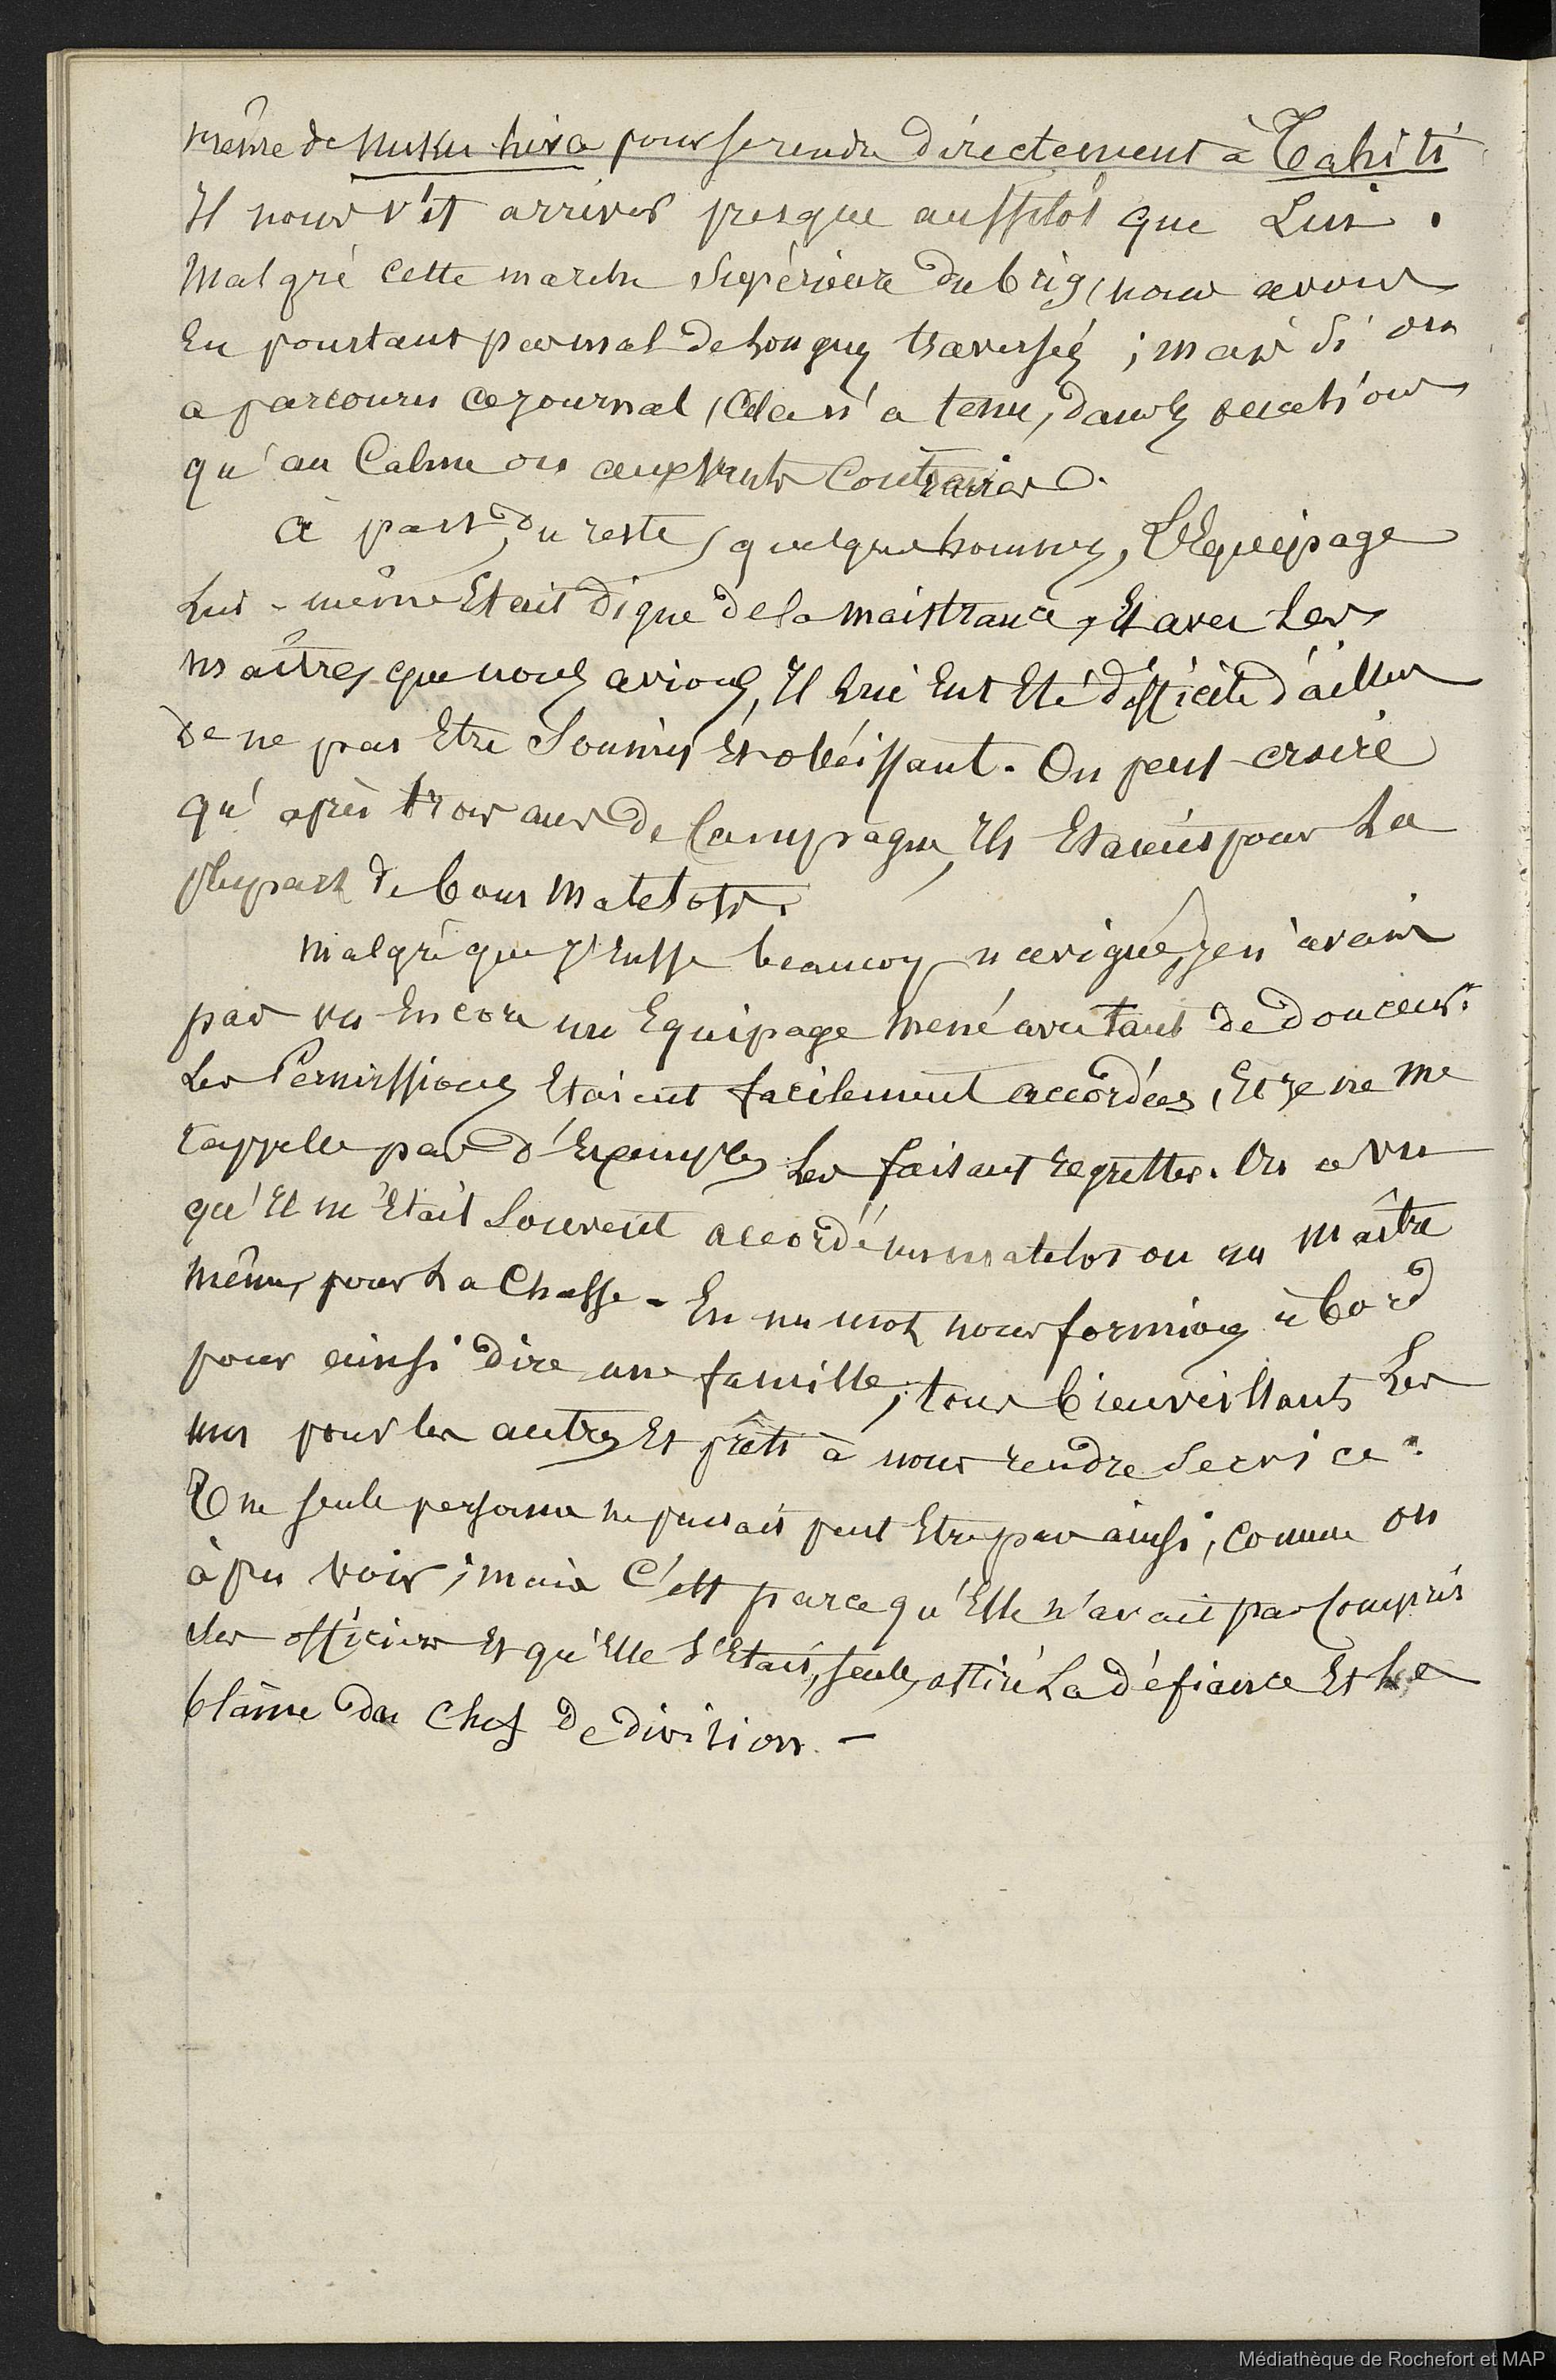 même de Nuku hiva pour se rendre directement à Tahiti
Il nous vit arriver presque aussitôt que Lui.
Malgré cette marche supérieure du brig, nous avons
Eu pourtant pas mal de Longues traversées ; mais si on
a parcouru ce journal, Cela n'a tenu, dans les
qu'au Calme ou aux Vents Contraires.
à part, du reste, quelques hommes, L'Equipage
Lui-même Etait digne de la maistrance, Et avec Les
maîtres que nous avions, Il Lui Eut Eté difficile d'ailleurs
de ne pas Etre Soumis Et obéissant. On peut croire
qu'après trois ans de Campagne, Ils Etaient pour La
plupart de bons Matelots.
Malgré que J'Eusse beaucoup navigué, je n'avais
pas vu Encore un Equipage mené avec tant de douceur.
Les Permissions Etaient facilement accordées, Et Je ne me
rappelle pas d'Exemples Les faisant regretter. On a vu
qu'Il m'Etait Souvent accordé un matelot ou un maître
même, pour La Chasse - En un mot nous formions à bord
pour ainsi dire une famille, tous bienveillants Les
uns pour les autres Et prêts à nous rendre Service.
Une seule personne ne pensait peut Etre pas ainsi, Comme on
à pu voir ; mais C'est parcequ'Elle n'avait pas Compris
les officiers Et qu'Elle S'Etait, seule, attiré La défiance Et Le
blâme du Chef de division. -
Médiathèque de Rochefort et MAP